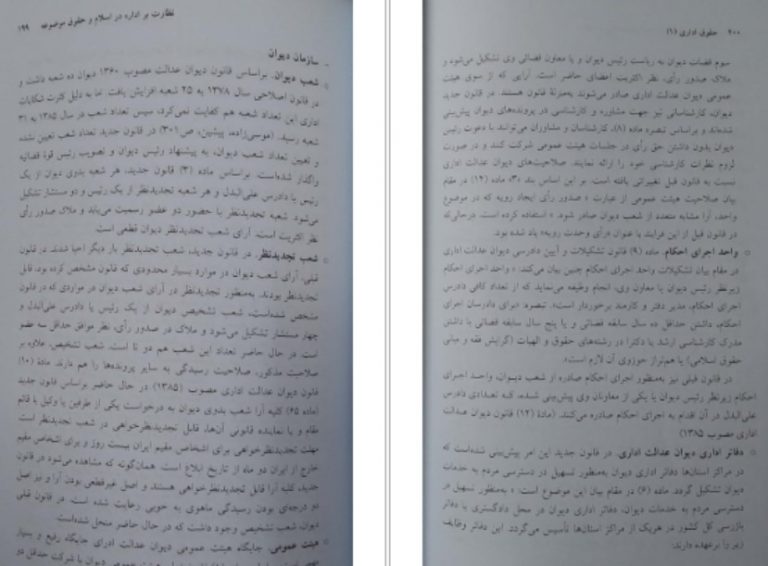 نظارت بر اداره در اسلام و حقوق موضوعه ۱۹۹
– سازمان دیوان
○ شعب دیوان. براساس قانون دیوان عدالت مصوب ۱۳۶۰ دیوان ده شعبه داشت و
در قانون اصلاحی سال ۱۳۷۸ به ۲۵ شعبه افزایش یافت. اما به دلیل کثرت شکایات
اداری این تعداد شعبه هم کفایت نمی‌کرد، سپس تعداد شعب در سال ۱۳۸۵ به ۳۱
شعبه رسید. (موسی‌زاده، پیشین، ص ۳۰۱) در قانون جدید تعداد شعب تعیین نشده
و تعیین تعداد شعب دیوان، به پیشنهاد رئیس دیوان و تصویب رئیس قوهٔ قضائیه
واگذار شده‌است. براساس مادهٔ (۳) قانون جدید، هر شعبه بدوی دیوان از یک
رئیس یا دادرس علی‌البدل و هر شعبه تجدیدنظر از یک رئیس و دو مستشار تشکیل
می‌شود. شعبه تجدیدنظر با حضور دو عضو رسمیت می‌یابد و ملاک صدور رأی
نظر اکثریت است. آرای شعب تجدیدنظر دیوان قطعی است.
○ شعب تجدیدنظر. در قانون جدید، شعب تجدیدنظر بار دیگر احیا شدند. در قانون
قبلی، آرای شعب دیوان در موارد بسیار محدودی که قانون مشخص کرده بود، قابل
تجدیدنظر بودند. به‌منظور تجدیدنظر در آرای شعب دیوان در مواردی که در قانون
مشخص شده‌است، شعب تشخیص دیوان از یک رئیس یا دادرس علی‌البدل و
چهار مستشار تشکیل می‌شود و ملاک در صدور رأی، نظر موافق حداقل سه عضو
است. در حال حاضر تعداد این شعب هم دو تا است. شعب تشخیص، علاوه بر
صلاحیت مذکور، صلاحیت رسیدگی به سایر پرونده‌ها را هم دارند. مادهٔ (۱۰)
قانون دیوان عدالت اداری مصوب (۱۳۸۵) در حال حاضر براساس قانون جدید
(ماده ۶۵) کلیه آرا شعب بدوی دیوان به درخواست یکی از طرفین یا وکیل یا قائم
مقام و یا نماینده قانونی آن‌ها، قابل تجدیدنظرخواهی در شعب تجدیدنظر است.
مهلت تجدیدنظرخواهی برای اشخاص مقیم ایران بیست روز و برای اشخاص مقیم
خارج از ایران دو ماه از تاریخ ابلاغ است. همان‌گونه که مشاهده می‌شود در قانون
جدید، کلیه آرا قابل تجدیدنظرخواهی هستند و اصل غیرقطعی بودن آرا و نیز اصل
دو درجه‌ای بودن رسیدگی ماهوی به خوبی رعایت شده است. در قانون قبلی
دیوان، شعب تشخیص وجود داشت که در حال حاضر منحل شده‌است.
○ هیئت عمومی. جایگاه هیئت عمومی دیوان عدالت اداری جایگاه رفیع و بسیار
۲۰۰ حقوق اداری (۱)
سوم قضات دیوان به ریاست رئیس دیوان و یا معاون قضائی وی تشکیل می‌شود و
ملاک صدور رأی، نظر اکثریت اعضای حاضر است. آرایی که از سوی هیئت
عمومی دیوان عدالت اداری صادر می‌شوند به‌منزلهٔ قانون هستند. در قانون جدید
دیوان، کارشناسانی نیز جهت مشاوره و کارشناسی در پرونده‌های دیوان پیش‌بینی
شده‌اند و براساس تبصره ماده (۸)، کارشناسان و مشاوران می‌توانند با دعوت رئیس
دیوان بدون داشتن حق رأی در جلسات هیئت عمومی شرکت کنند و در صورت
لزوم نظرات کارشناسی خود را ارائه نمایند. صلاحیت‌های دیوان عدالت اداری
نسبت به قانون قبل تغییراتی یافته است. بر این اساس بند «۳» ماده (۱۲) در مقام
بیان صلاحیت هیئت عمومی از عبارت «صدور رأی ایجاد رویه که در موضوع
واحد، آرا مشابه متعدد از شعب دیوان صادر شود.» استفاده کرده است. درحالی‌که
در قانون قبل از این فرایند با عنوان «رأی وحدت رویه» یاد شده بود.
○ واحد اجرای احکام. ماده (۹) قانون تشکیلات و آیین دادرسی دیوان عدالت اداری
در مقام بیان تشکیلات واحد اجرای احکام چنین بیان می‌کند: «واحد اجرای احکام
زیرنظر رئیس دیوان یا معاون وی، انجام وظیفه می‌نماید که از تعداد کافی دادرس
اجرای احکام، مدیر دفتر و کارمند برخوردار است». تبصره: «برای دادرسان اجرای
احکام، داشتن حداقل ده سال سابقه قضائی و یا پنج سال سابقه قضائی با داشتن
مدرک کارشناسی ارشد یا دکترا در رشته‌های حقوق و الهیات (گرایش فقه و مبانی
حقوق اسلامی) یا هم‌تراز حوزوی آن لازم است»
در قانون قبلی نیز به‌منظور اجرای احکام صادره از شعب دیوان، واحد اجرای
احکام زیرنظر رئیس دیوان یا یکی از معاونان وی پیش‌بینی شده، که تعدادی دادرس
علی‌البدل در آن اقدام به اجرای احکام صادره می‌کنند. (مادهٔ (۱۲) قانون دیوان عدالت
اداری مصوب ۱۳۸۵)
○ دفاتر اداری دیوان عدالت اداری. در قانون جدید این امر پیش‌بینی شده‌است که
در مراکز استان‌ها دفاتر اداری دیوان به‌منظور تسهیل در دسترسی مردم به خدمات
دیوان تشکیل گردد. ماده (۶) در مقام بیان این موضوع است: «به‌منظور تسهیل در
دسترسی مردم به خدمات دیوان، دفاتر اداری دیوان در محل دادگستری یا دفاتر
بازرسی کل کشور در هریک از مراکز استان‌ها تأسیس می‌گردد. این دفاتر وظایف
زیر را برعهده دارند: